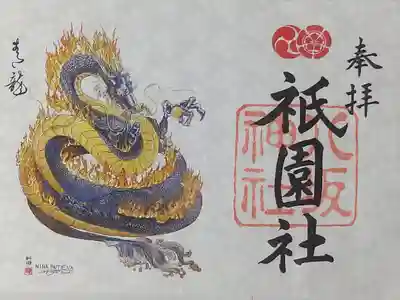 奉拝
祇園社
八坂
神社
青龍